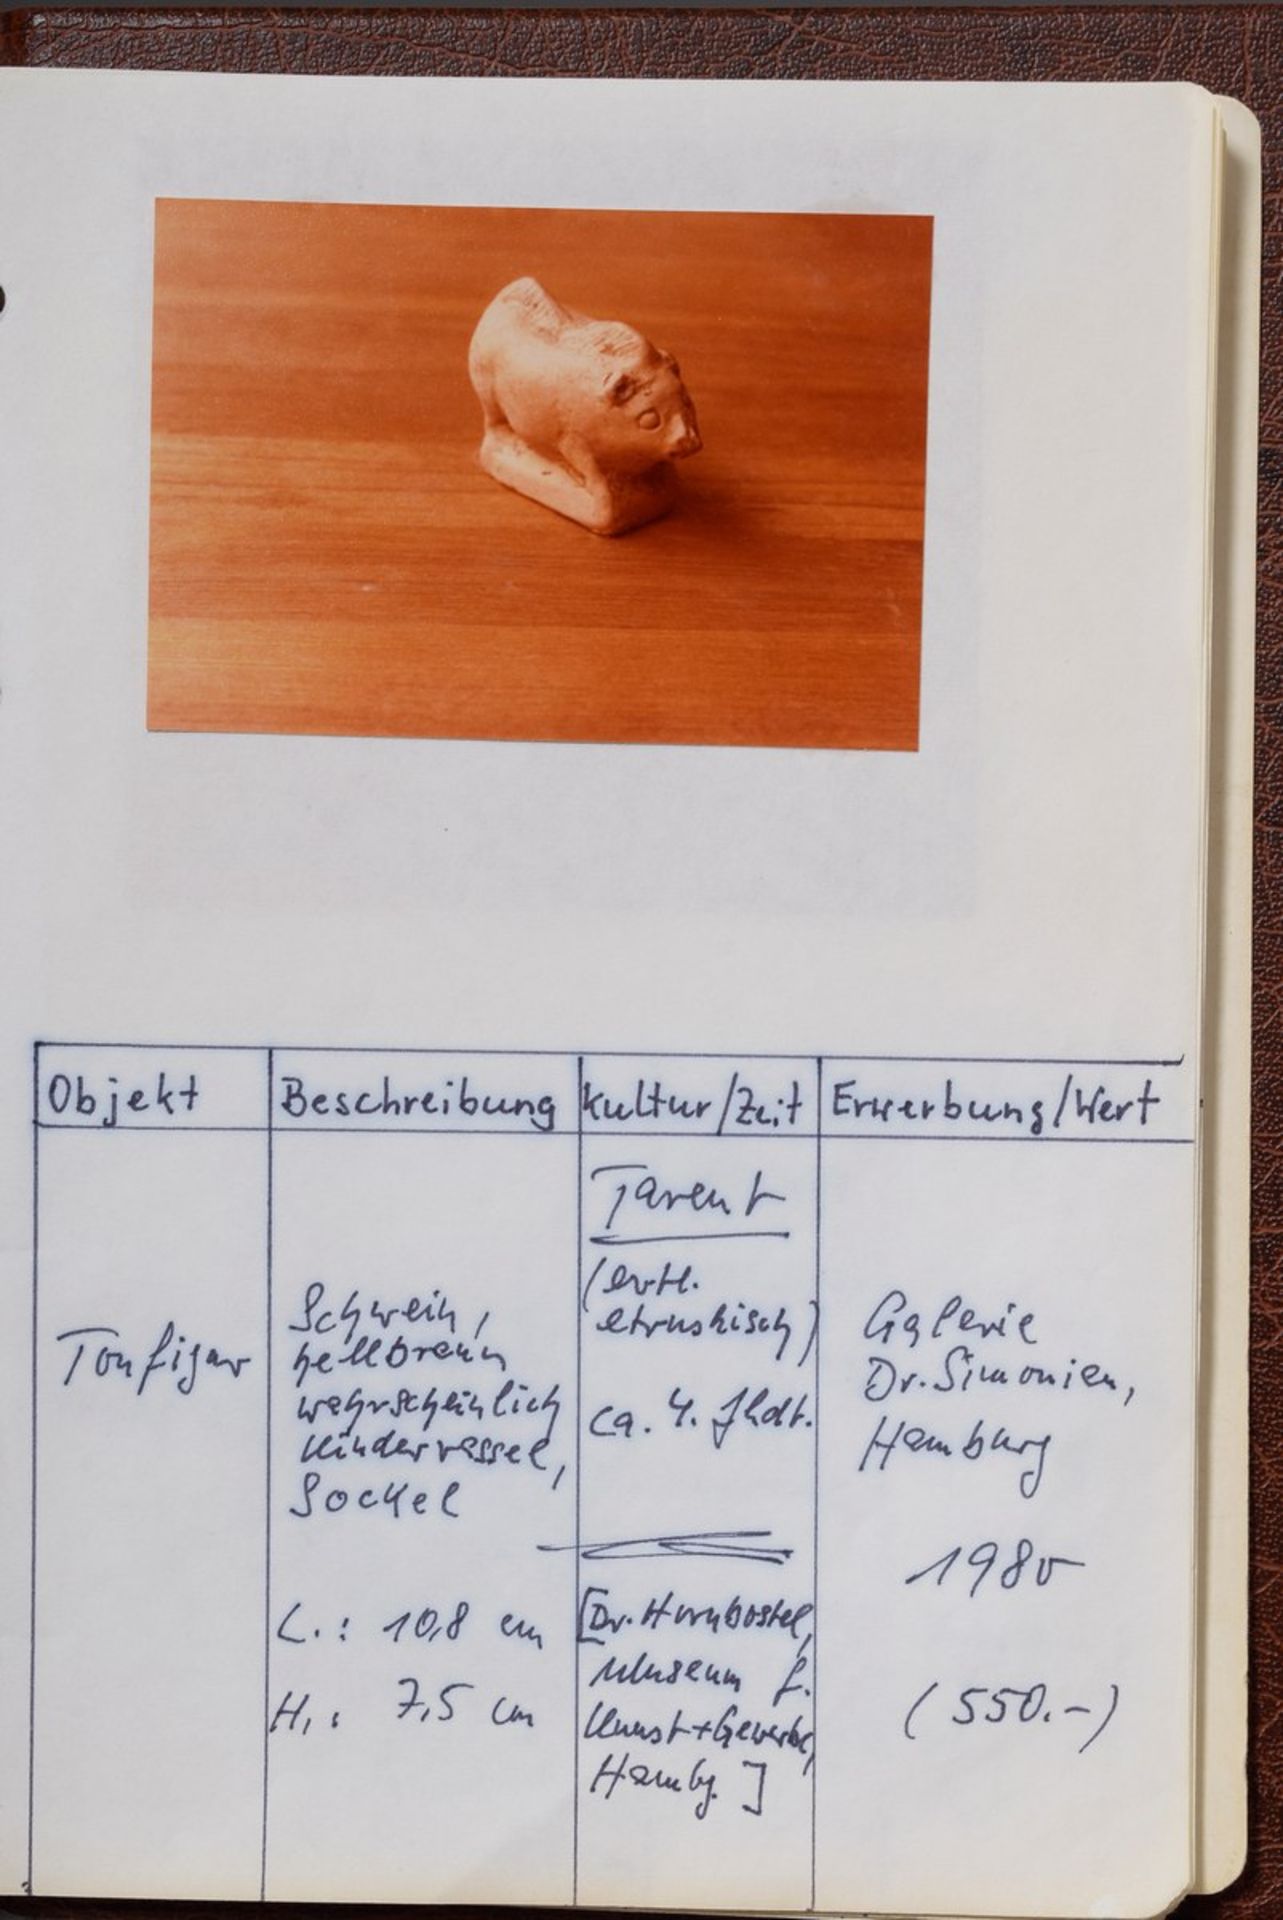 Objekt
Beschreibung
Kultur/Zeit
Erwerbung/Wert
Tonfigur
Schwein,
hellbraun
wahrscheinlich
Kinderrassel,
Sockel
L.: 10,8 cm
H.: 7,5 cm
Tarent
(evtl.
etruskisch)
ca. 4. Jhdt.
[Dr. Hornbostel,
Museum f.
Kunst + Gewerbe,
Hambg.]
Galerie
Dr. Simonien,
Hamburg
1980
(550.-)